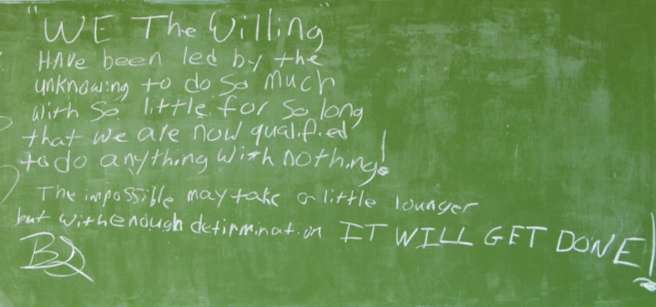 "WE The Willing"
HAve been led by the
unknowing to do so much
with so little for so long
that we are now qualified
to do anything with nothing!
The impossible may take a little lounger
but with enough detirmination IT WILL GET DONE!